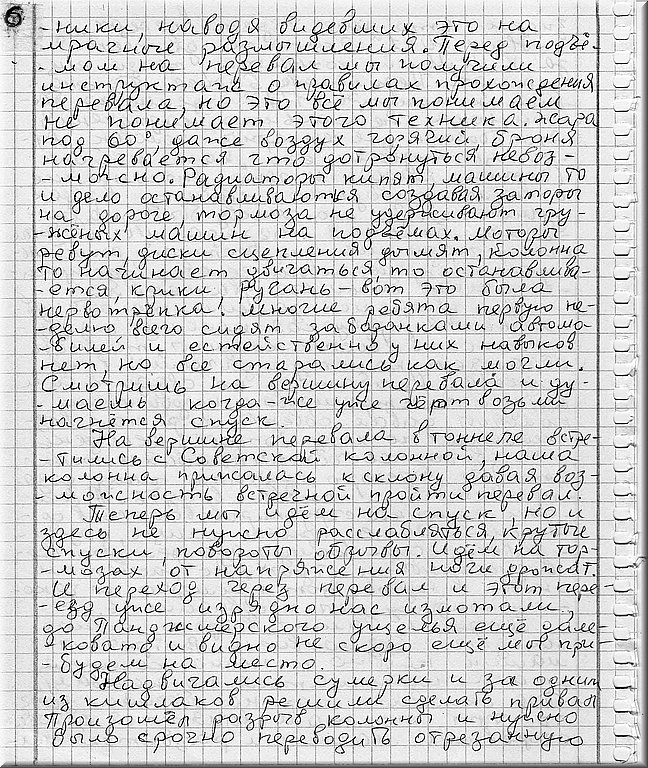 6
-ники, наводя видевших это на
мрачные размышления. Перед подъё-
-мом на перевал мы получили
инструктаж о правилах прохождения
перевала, но это всё мы понимаем
не понимает этого техника. жара
под 60°, даже воздух горячий, броня
нагревается что дотронуться невоз-
-можно. Радиаторы кипят, машины то
и дело останавливаются создавая заторы
на дороге, тормоза не удерживают гру-
-жёных машин на подъёмах. Моторы
ревут, диски сцепления дымят, колонна
то начинает двигаться, то останавлива-
-ется, крики, ругань - вот это была
нервотрёпка! Многие ребята первую не-
-делю всего сидят за баранками автомо-
-билей и естейственно у них навыков
нет, но все старались как могли.
Смотришь на вершину перевала и ду-
-маешь когда-же уже чёрт возьми
начнётся спуск.
На вершине перевала в тоннеле встре-
-тились с Советской колонной, наша
колонна прижалась к склону давая воз-
-можность встречной пройти перевал.
Теперь мы идём на спуск, но и
здесь не нужно расслабляться, крутые
спуски, повороты, обрывы. Идём на тор-
-мозах от напряжения ноги дрожат.
И переход через перевал и этот пере-
-езд уже изрядно нас измотали,
до Панджшерского ущелья ещё дале-
-ковато и видно не скоро ещё мы при-
-будем на место.
Надвигались сумерки и за одним
из кишлаков решили сделать привал
Произошёл разрыв колонны и нужно
было срочно переводить отрезанную